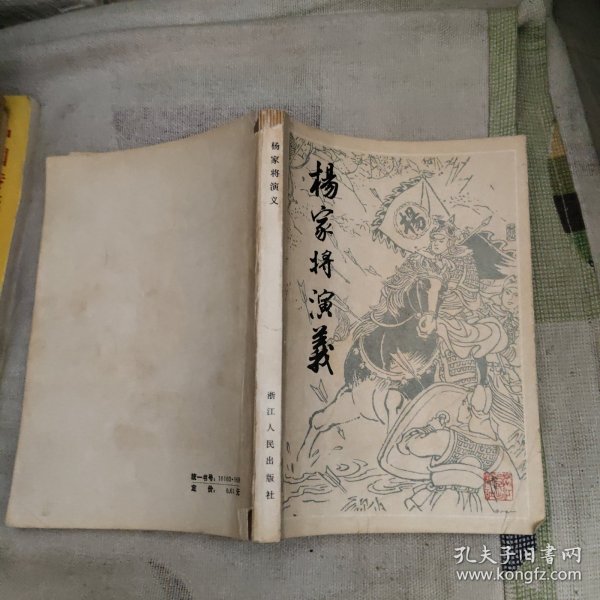 楊家将演義
楊
杨家将演义
浙江人民出版社
统一书号：
定 价：
孔夫子旧书网
www.kongfz.com